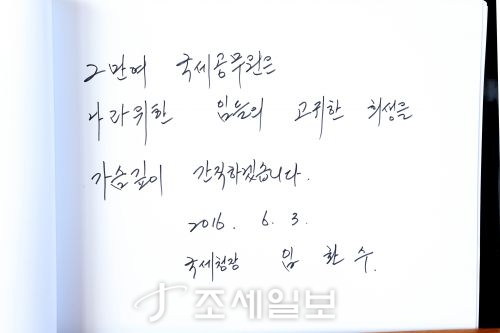 2만여 국세공무원은
나라위한 임들의 고귀한 희생을
가슴깊이 간직하겠습니다.
2016. 6. 3.
국세청장 임 환 수.
조세일보